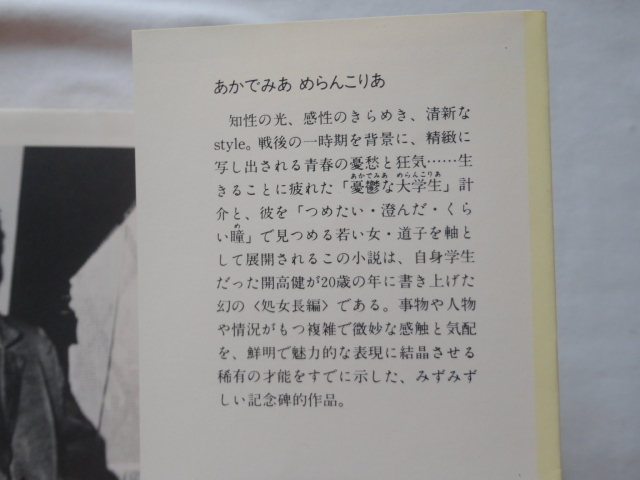 あかでみあ めらんこりあ
知性の光、感性のきらめき、清新な
style。戦後の一時期を背景に、精緻に
写し出される青春の憂愁と狂気……生
あかでみあ めらんこりあ
きることに疲れた「憂鬱な大学生」計
介と、彼を「つめたい・澄んだ・くら
め
い瞳」で見つめる若い女・道子を軸と
して展開されるこの小説は、自身学生
だった開高健が20歳の年に書き上げた
幻の〈処女長編〉である。事物や人物
や情況がもつ複雑で微妙な感触と気配
を、鮮明で魅力的な表現に結晶させる
稀有の才能をすでに示した、みずみず
しい記念碑的作品。